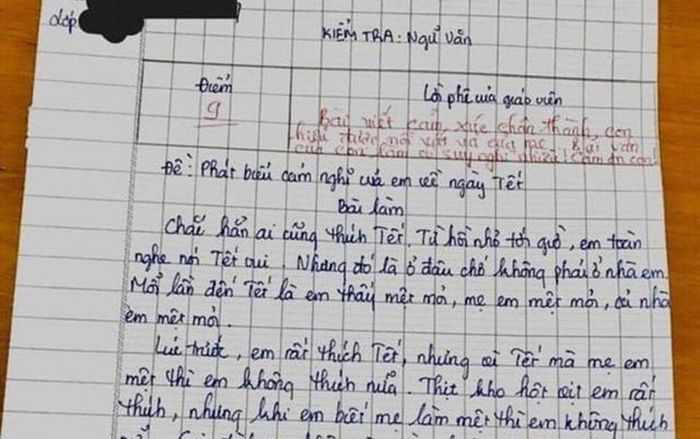 Lớp
KIỂM TRA: Ngữ Văn
Điểm
9
Lời phê của giáo viên
Bài viết cảm xúc chân thành, con
hiểu được nỗi vất vả của mẹ. Bài văn
của con làm cô suy nghĩ nhiều! Cảm ơn con!
Đề: Phát biểu cảm nghĩ của em về ngày Tết
Bài làm
Chắc hẳn ai cũng thích Tết. Từ hồi nhỏ tới giờ, em toàn
nghe nói Tết vui. Nhưng đó là ở đâu chớ không phải ở nhà em.
Mỗi lần đến Tết là em thấy mệt mỏi, mẹ em mệt mỏi, cả nhà
em mệt mỏi.
Lúc trước, em rất thích Tết, nhưng vì Tết mà mẹ em
mệt thì em không thích nữa. Thịt kho hột vịt em rất
thích, nhưng khi em biết mẹ làm mệt thì em không thích